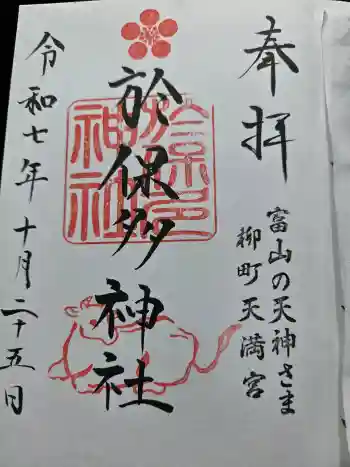 奉拝
富山の天神さま
柳町天満宮
於保多神社
令和七年十月二十五日
於保多
神社